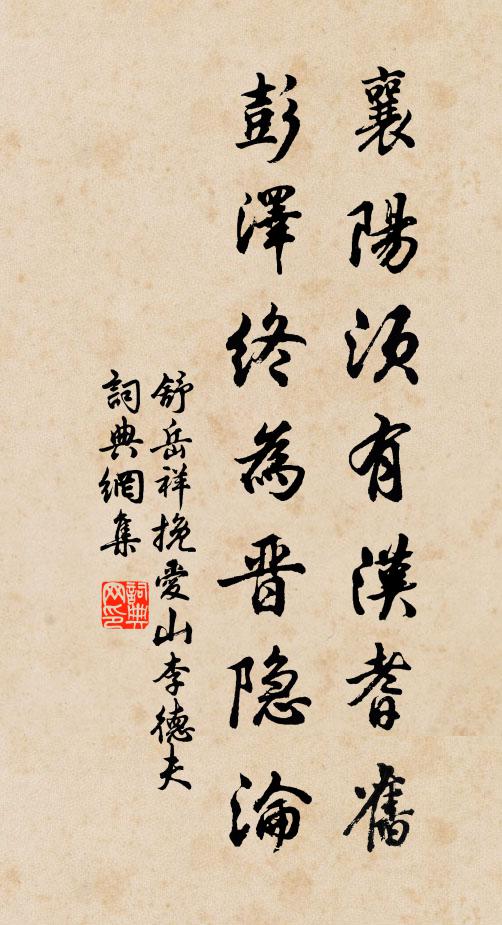 襄陽須有漢耆舊
彭澤終為晋隐淪
舒岳祥挽愛山李德夫
詞典網集
詞典網印